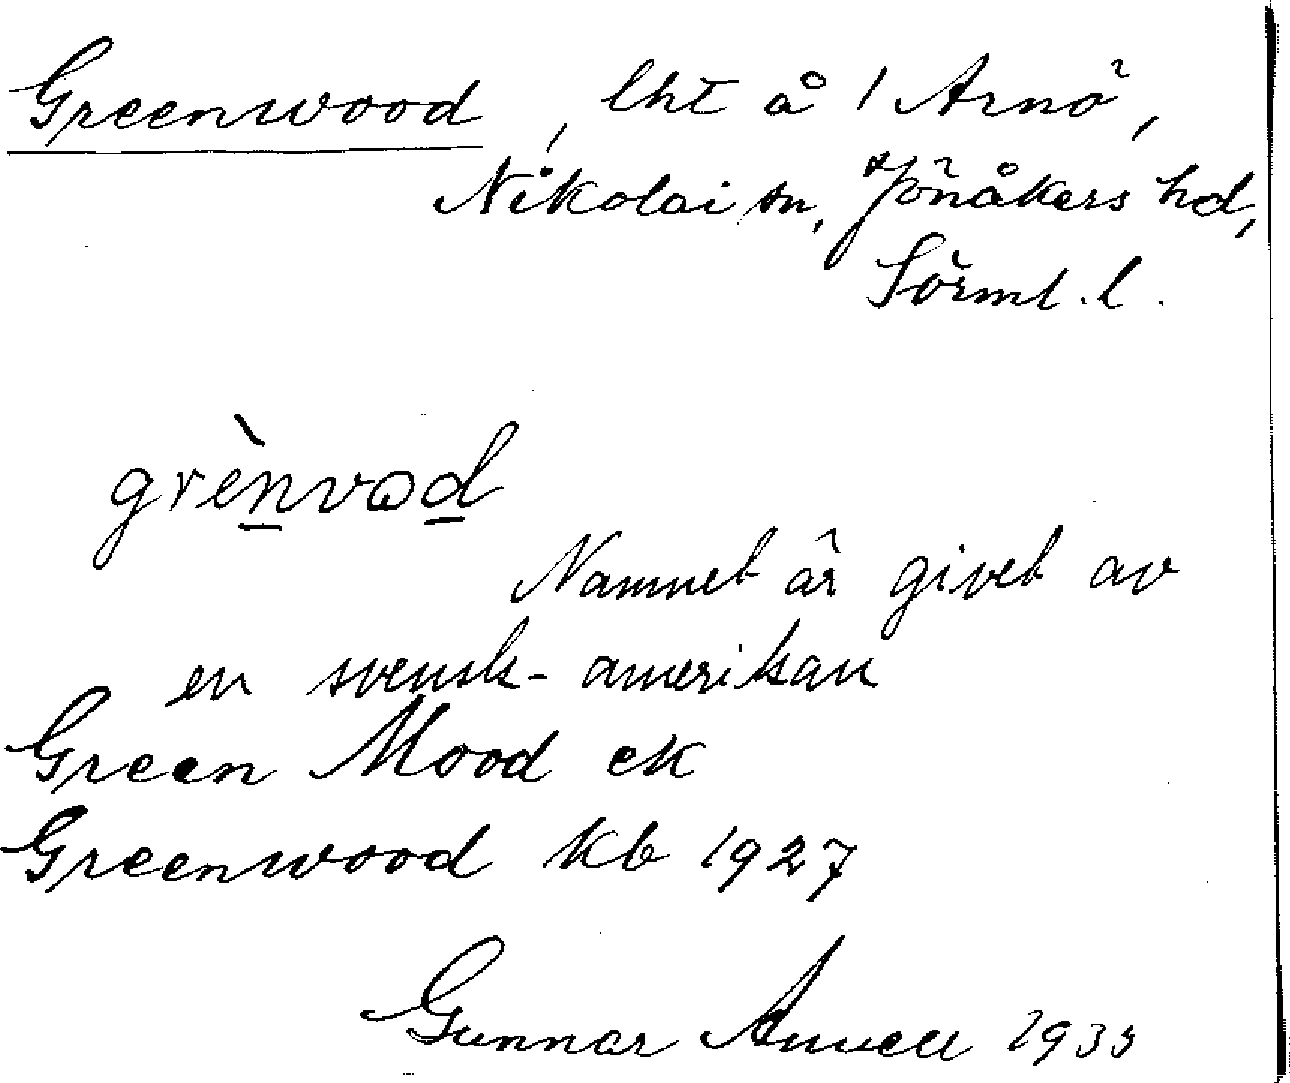 Greenwood, lht å 1 Arnö,
Nikolai sn, Jönåkers hd,
Sörml. l.
grènvod
Namnet är givet av
en svensk-amerikan
Green Mood ek
Greenwood kb 1927
Gunnar 1933